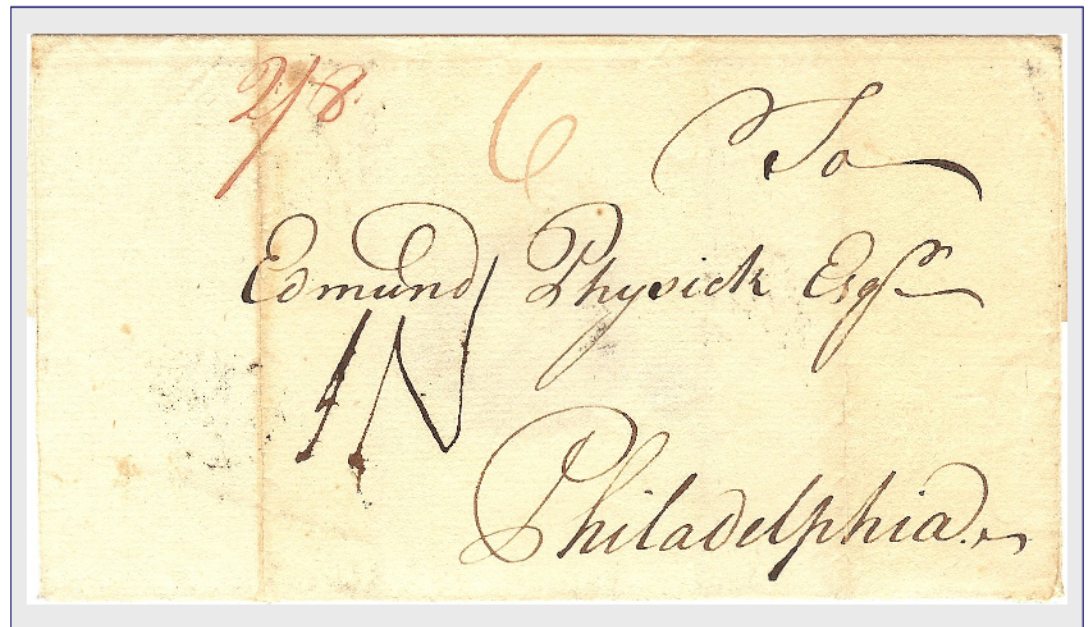 2/8 6 To
Edmund Physick Esqr
1N
Philadelphia